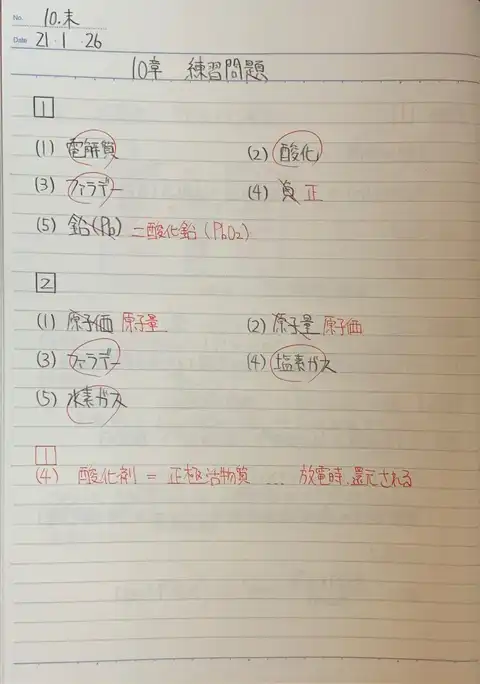 No. 10.末
Date 21・1・26
10章 練習問題
1
(1) 電解質 (2) 酸化
(3) ファラデー (4) 負 正
(5) 鉛(Pb) 二酸化鉛(PbO2)
2
(1) 原子価 原子量 (2) 原子量 原子価
(3) ファラデー (4) 塩素ガス
(5) 水素ガス
1
(4) 酸化剤 = 正極活物質 … 放電時,還元される